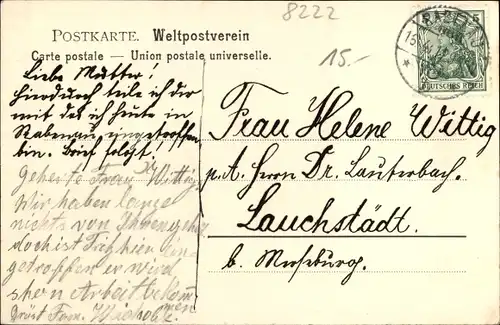 8222
POSTKARTE. Weltpostverein
Carte postale — Union postale universelle.
15.-
RABENAU
DEUTSCHES REICH
5
Liebe Mutter!
Hierdurch teile ich dir
mit daß ich heute in
Rabenau eingetroffen
bin. Brief folgt!
Geherte Frau Wittig
Wir haben lange
nichts von Ihnen gehört
doch ist
getroffen er wird
schon Arbeit bekommen
Frau Helene Wittig
p. A. Herrn Dr. Lauterbach.
Lauchstädt.
b. Merseburg.